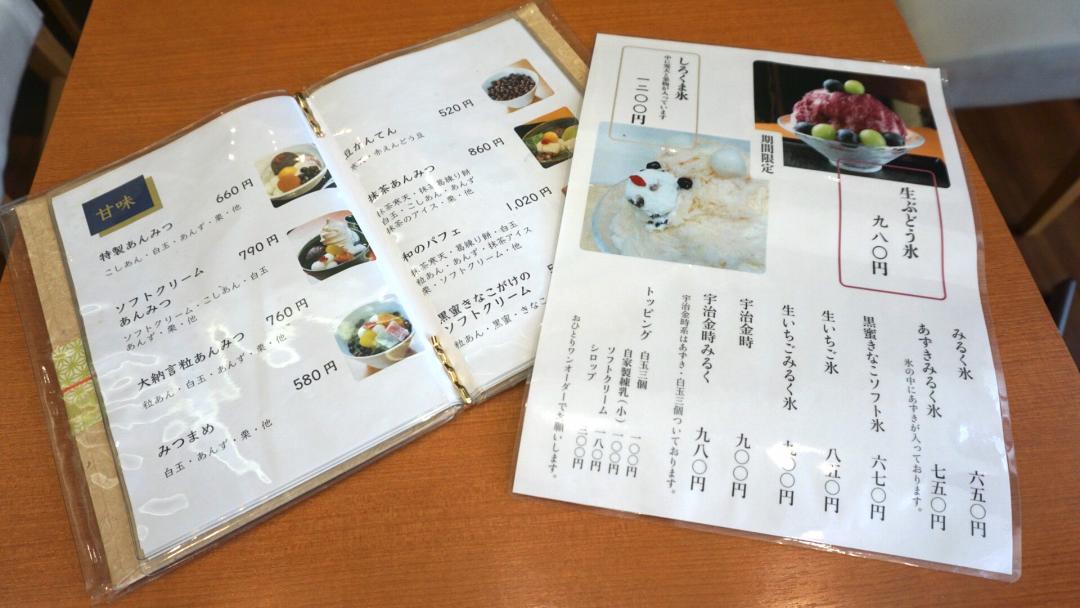 甘味
特製あんみつ 660円
こしあん・白玉・あんず・栗・他
ソフトクリーム
あんみつ 790円
ソフトクリーム・こしあん・白玉
あんず・栗・他
大納言粒あんみつ 760円
粒あん・白玉・あんず・栗・他
みつまめ 580円
白玉・あんず・栗・他
豆かんてん 520円
寒天・赤えんどう豆
抹茶あんみつ 860円
抹茶寒天・抹茶葛練り餅
白玉・こしあん・あんず
抹茶のアイス・栗・他
和のパフェ 1,020円
抹茶寒天・葛練り餅・白玉
粒あん・あんず・抹茶アイス
栗・ソフトクリーム・他
黒蜜きなこがけの
ソフトクリーム
粒あん・黒蜜・きなこ
生ぶどう氷
九八〇円
期間限定
しろくま氷
中に寒天と果物が入っています
一二〇〇円
みるく氷 六五〇円
あずきみるく氷 七五〇円
氷の中にあずきが入っております。
黒蜜きなこソフト氷 六七〇円
生いちご氷 八五〇円
生いちごみるく氷 〇〇円
宇治金時 九〇〇円
宇治金時みるく 九八〇円
宇治金時系はあずき・白玉三個ついております。
トッピング 白玉三個 一〇〇円
自家製練乳(小) 一〇〇円
ソフトクリーム 一八〇円
シロップ 二〇〇円
おひとりワンオーダーでお願いします。